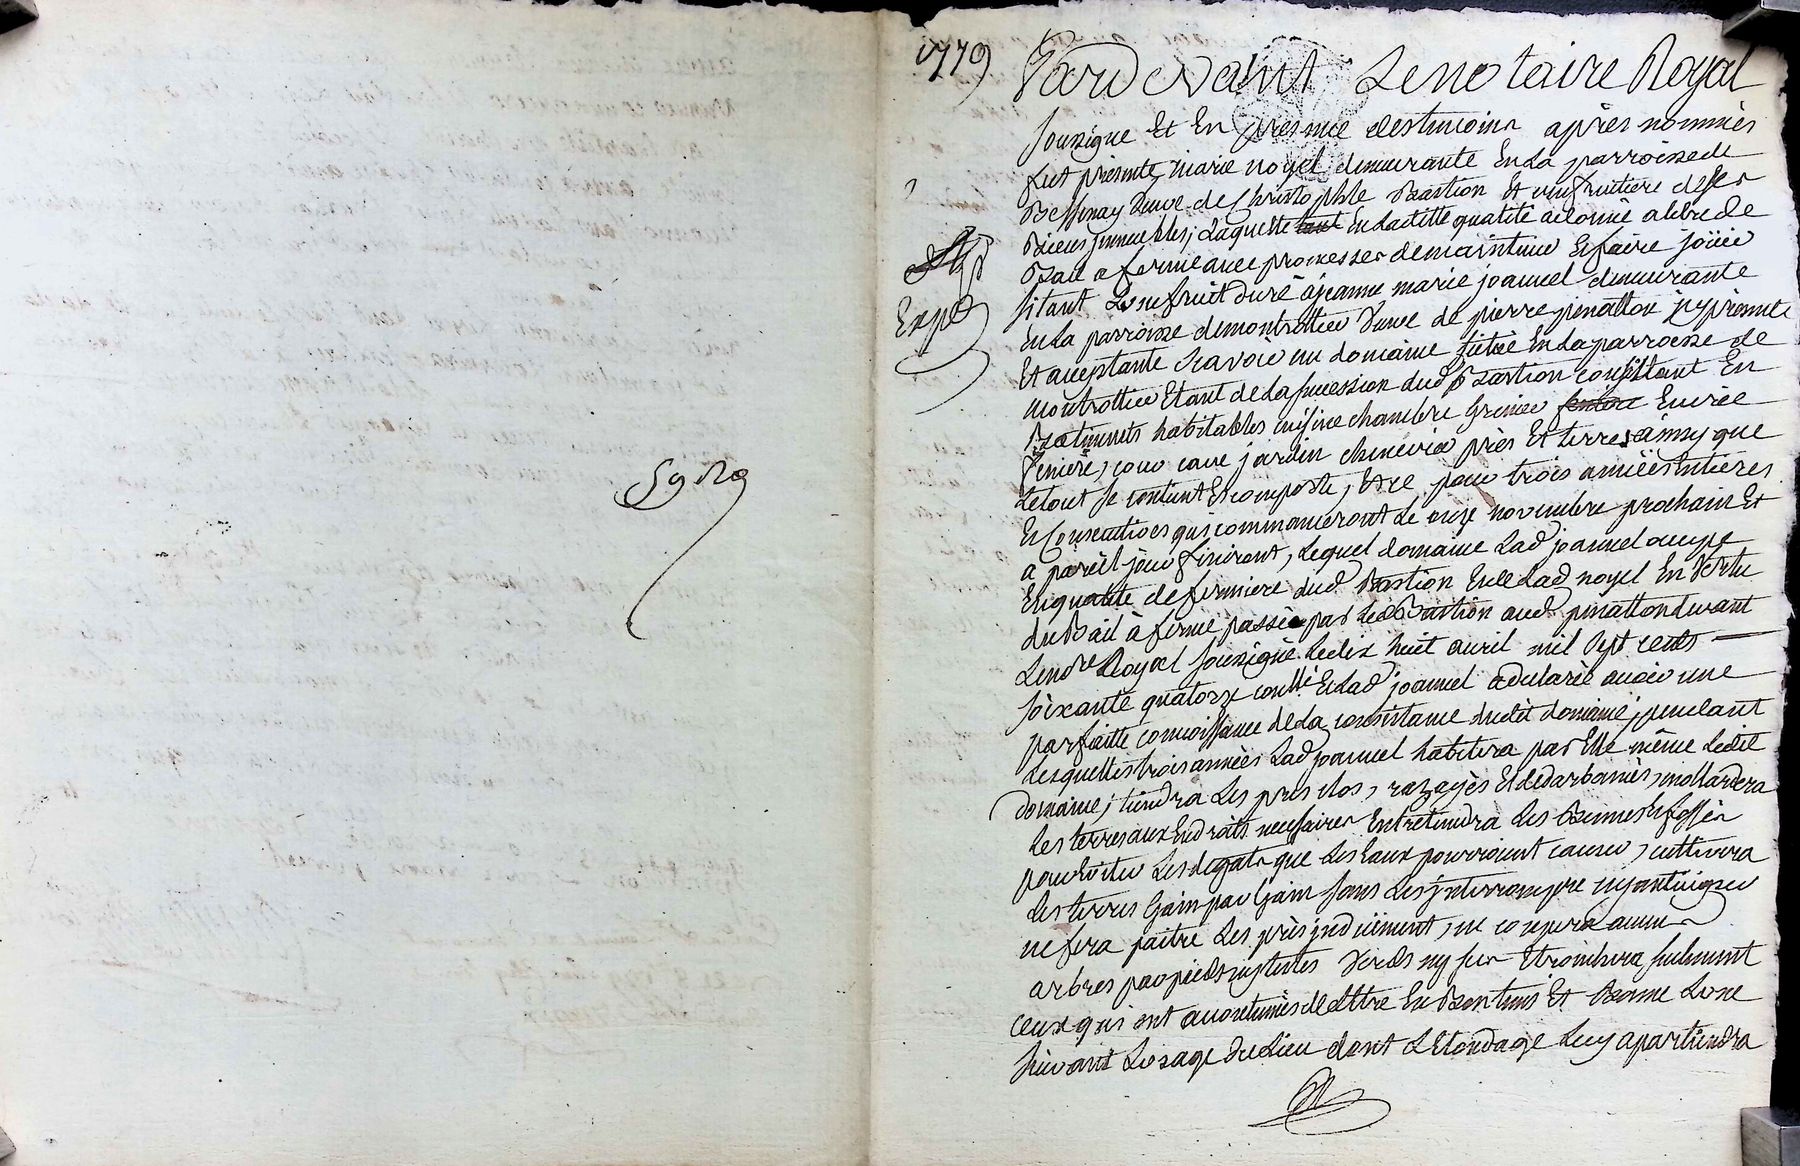 1779
Pardevant Le notaire Royal
soussigné Et En présence des temoins après nommés
fut présente Marie noyel demeurante En La parroisse de
Bessenay veuve de Christophle Bastion Et usufruitiere de ses
Biens jmmeubles, Laquelle En Laditte qualité a donné a titre de
Bail a ferme avec promesses de maintenir Et faire joüir
sitant L'usufruit dure à jeanne marie joannel demeurante
En La parroisse de montrottier veuve de pierre pinatton jcy présente
Et acceptante scavoir un domaine situé En La parroisse de
montrottier Etant de La succession dud Bastion consistant En
Batiments habitables cuisine chambre Grenier Ecurie
feniere, cour cave jardin chenevier près Et terres ainsy que
Le tout se contient Et comporte, Et ce pour trois années Entieres
Et Consecutives qui commanceront Le onze novembre prochain Et
a pareil jour finiront, Lequel domaine Lad joannel occupe
En qualité de fermiere dud Bastion Et de Lad noyel En Vertu
du Bail à ferme passé par Led Bastion aud pinatton devant
Le nore Royal soussigné Le dix huit avril mil sept cents
soixante quatorze conllé Et Lad joannel a declaré avoir une
parfaitte connoissance de La consistance dudit domaine, pendant
Lesquelles trois années Lad joannel habitera par Elle même Ledit
domaine, tiendra Les prés clos, razagés Et dedarbonnés, mollardera
Les terres aux Endroits necessaires Entretiendra Les Bennes Et fossés
pour Eviter Les degats que Les Eaux pourroient causer, cultivera
Les terres Gain par Gain sans Les jnterrompre ny anticiper
ne fera paitre Les près jnduëment, ne coupera aucuns
arbres par pieds ny tetes verds ny secs Etronchera seulement
ceux qui ont accoutumés de L'Etre En Bon tems Et Bonne Lune
suivant L'usage du Lieu dont L'Etondage Luy apartiendra
Expé